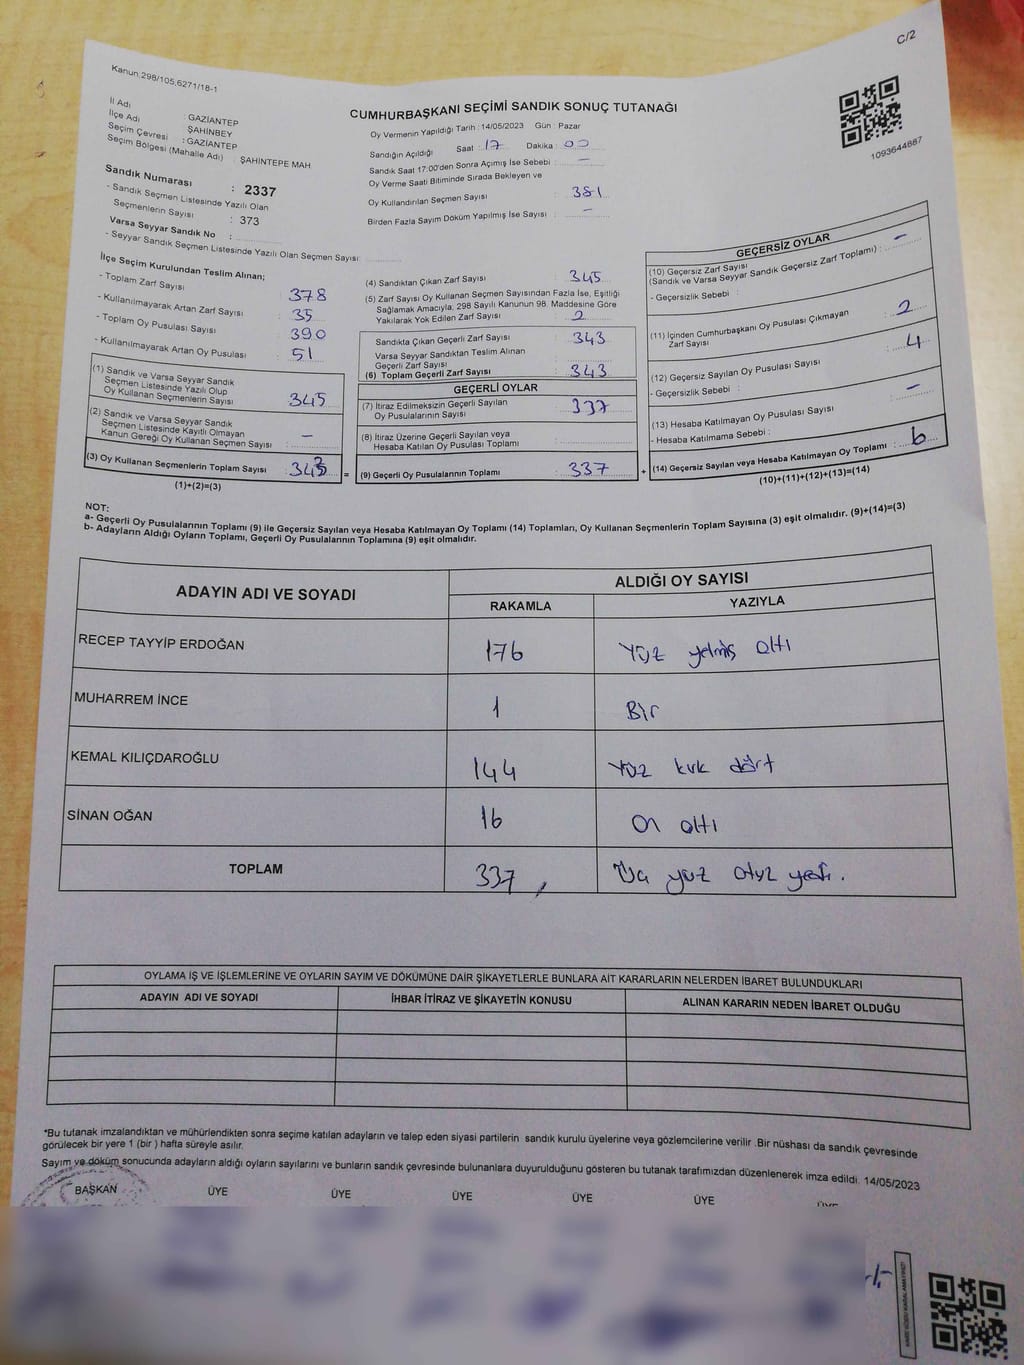 C/2
Kanun:298/105,6271/18-1
CUMHURBAŞKANI SEÇİMİ SANDIK SONUÇ TUTANAĞI
1093644887
İl Adı : GAZİANTEP
İlçe Adı ŞAHİNBEY
Seçim Çevresi : GAZİANTEP
Seçim Bölgesi (Mahalle Adı) : ŞAHİNTEPE MAH
Sandık Numarası : 2337
- Sandık Seçmen Listesinde Yazılı Olan
Seçmenlerin Sayısı : 373
Varsa Seyyar Sandık No :
- Seyyar Sandık Seçmen Listesinde Yazılı Olan Seçmen Sayısı:
Oy Vermenin Yapıldığı Tarih : 14/05/2023 Gün : Pazar
Sandığın Açıldığı Saat : 17 Dakika : 00
Sandık Saat 17:00'den Sonra Açımış İse Sebebi : —
Oy Verme Saati Bitiminde Sırada Bekleyen ve
Oy Kullandırılan Seçmen Sayısı : 381
Birden Fazla Sayım Döküm Yapılmış İse Sayısı : —
İlçe Seçim Kurulundan Teslim Alınan;
- Toplam Zarf Sayısı : 378
- Kullanılmayarak Artan Zarf Sayısı : 35
- Toplam Oy Pusulası Sayısı : 390
- Kullanılmayarak Artan Oy Pusulası : 51
(1) Sandık ve Varsa Seyyar Sandık
Seçmen Listesinde Yazılı Olup
Oy Kullanan Seçmenlerin Sayısı : 345
(2) Sandık ve Varsa Seyyar Sandık
Seçmen Listesinde Kayıtlı Olmayan
Kanun Gereği Oy Kullanan Seçmen Sayısı : —
(3) Oy Kullanan Seçmenlerin Toplam Sayısı : 343 =
(1)+(2)=(3)
(4) Sandıktan Çıkan Zarf Sayısı : 345
(5) Zarf Sayısı Oy Kullanan Seçmen Sayısından Fazla İse, Eşitliği
Sağlamak Amacıyla, 298 Sayılı Kanunun 98. Maddesine Göre
Yakılarak Yok Edilen Zarf Sayısı : 2
Sandıkta Çıkan Geçerli Zarf Sayısı : 343
Varsa Seyyar Sandıktan Teslim Alınan
Geçerli Zarf Sayısı :
(6) Toplam Geçerli Zarf Sayısı : 343
GEÇERLİ OYLAR
(7) İtiraz Edilmeksizin Geçerli Sayılan
Oy Pusulalarının Sayısı : 337
(8) İtiraz Üzerine Geçerli Sayılan veya
Hesaba Katılan Oy Pusulası Toplamı :
(9) Geçerli Oy Pusulalarının Toplamı : 337 +
GEÇERSİZ OYLAR
(10) Geçersiz Zarf Sayısı
(Sandık ve Varsa Seyyar Sandık Geçersiz Zarf Toplamı) : —
- Geçersizlik Sebebi :
(11) İçinden Cumhurbaşkanı Oy Pusulası Çıkmayan
Zarf Sayısı : 2
(12) Geçersiz Sayılan Oy Pusulası Sayısı : 4
- Geçersizlik Sebebi :
(13) Hesaba Katılmayan Oy Pusulası Sayısı : —
- Hesaba Katılmama Sebebi :
(14) Geçersiz Sayılan veya Hesaba Katılmayan Oy Toplamı : 6
(10)+(11)+(12)+(13)=(14)
NOT:
a- Geçerli Oy Pusulalarının Toplamı (9) ile Geçersiz Sayılan veya Hesaba Katılmayan Oy Toplamı (14) Toplamları, Oy Kullanan Seçmenlerin Toplam Sayısına (3) eşit olmalıdır. (9)+(14)=(3)
b- Adayların Aldığı Oyların Toplamı, Geçerli Oy Pusulalarının Toplamına (9) eşit olmalıdır.
ADAYIN ADI VE SOYADI ALDIĞI OY SAYISI
RAKAMLA YAZIYLA
RECEP TAYYİP ERDOĞAN 176 Yüz yetmiş altı
MUHARREM İNCE 1 Bir
KEMAL KILIÇDAROĞLU 144 Yüz kırk dört
SİNAN OĞAN 16 On altı
TOPLAM 337 Üç yüz otuz yedi.
OYLAMA İŞ VE İŞLEMLERİNE VE OYLARIN SAYIM VE DÖKÜMÜNE DAİR ŞİKAYETLERLE BUNLARA AİT KARARLARIN NELERDEN İBARET BULUNDUKLARI
ADAYIN ADI VE SOYADI İHBAR İTİRAZ VE ŞİKAYETİN KONUSU ALINAN KARARIN NEDEN İBARET OLDUĞU
*Bu tutanak imzalandıktan ve mühürlendikten sonra seçime katılan adayların ve talep eden siyasi partilerin sandık kurulu üyelerine veya gözlemcilerine verilir .Bir nüshası da sandık çevresinde
görülecek bir yere 1 (bir ) hafta süreyle asılır.
Sayım ve döküm sonucunda adayların aldığı oyların sayılarını ve bunların sandık çevresinde bulunanlara duyurulduğunu gösteren bu tutanak tarafımızdan düzenlenerek imza edildi. 14/05/2023
BAŞKAN ÜYE ÜYE ÜYE ÜYE ÜYE ÜYE